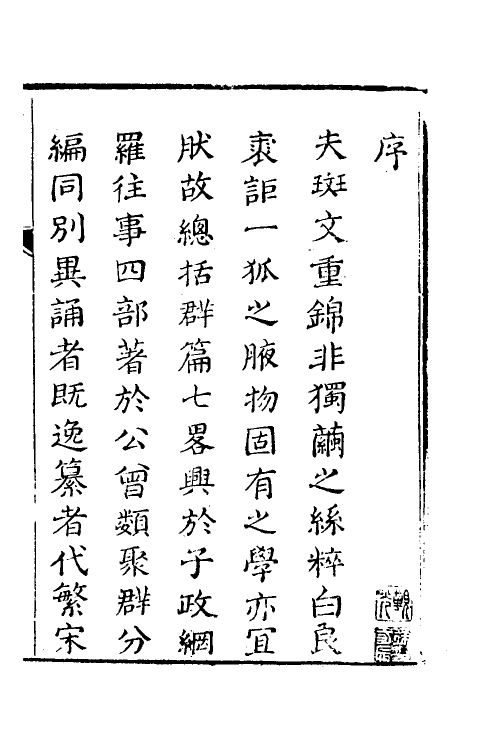 序
夫斑文重錦非獨繭之絲粹白良
裘詎一狐之腋物固有之學亦冝
肰故總括群篇七畧興於子政網
羅往事四部著於公曾類聚群分
編同別異誦者既逸纂者代繁宋